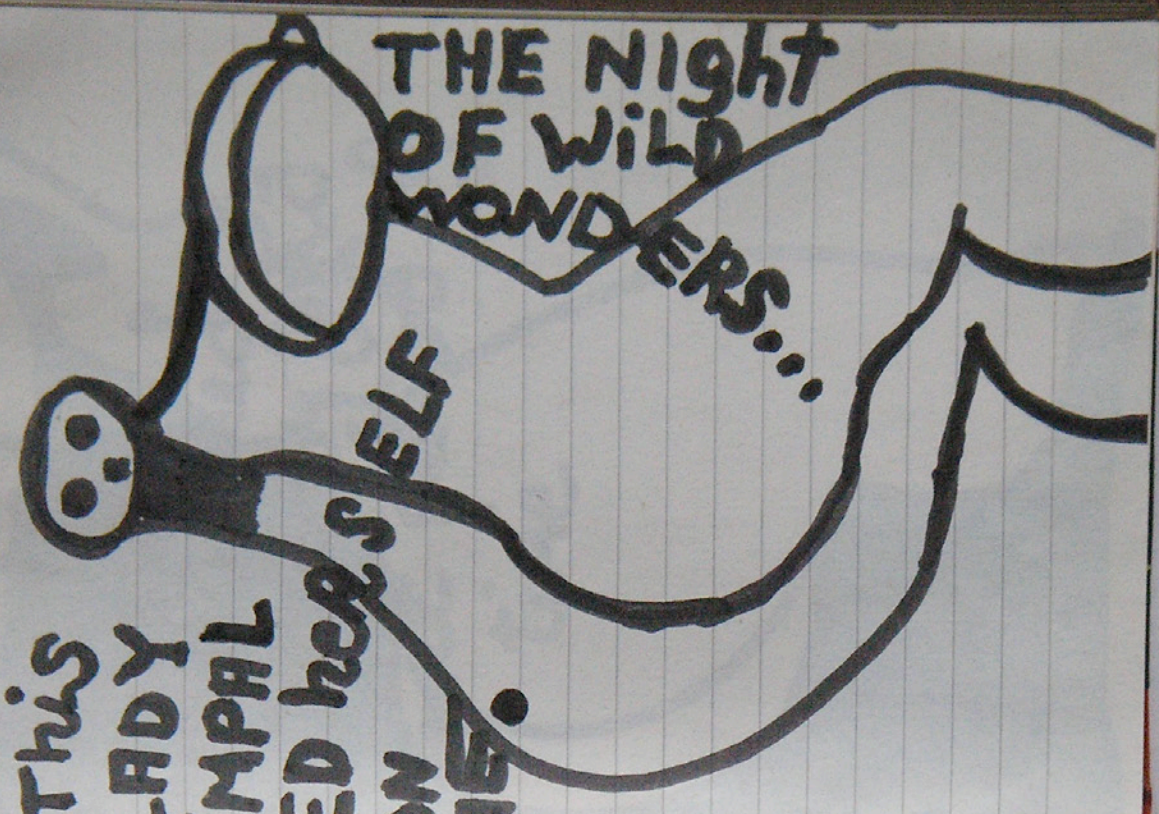 THE Night
OF WiLD
WONDERS...
This
LADY
MPAL
ED herSELF
ON